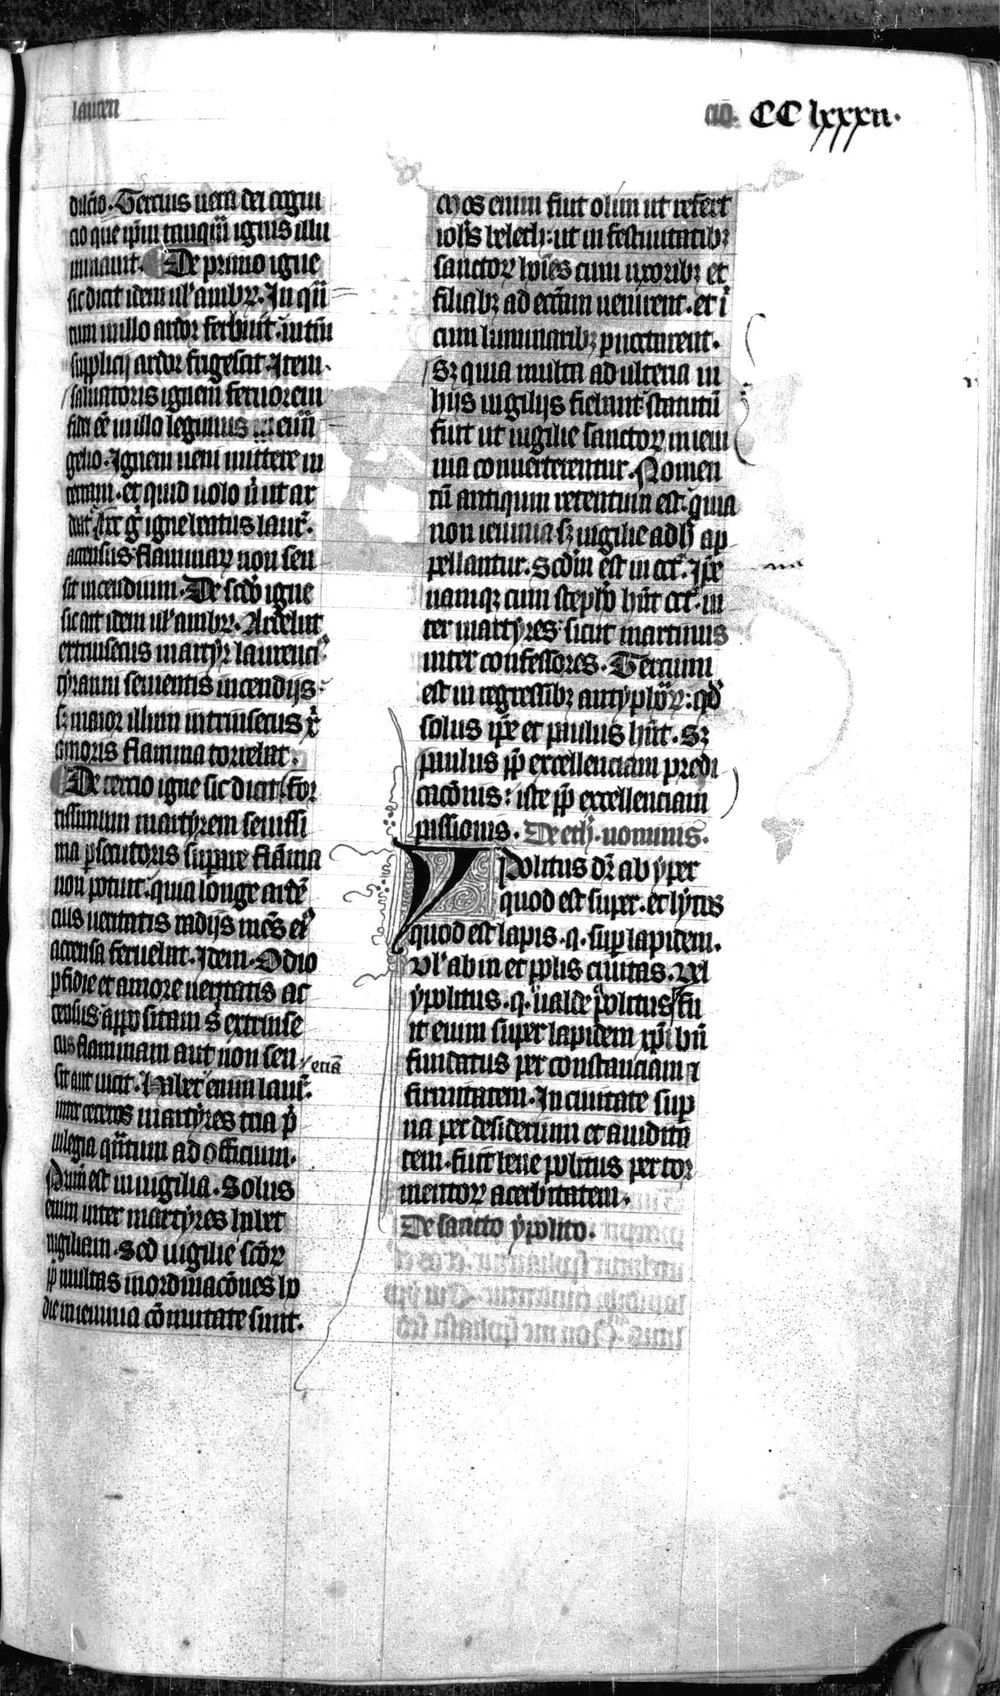 lauren
CC lxxxii.
dilcio. Tercius uera dei cogni
cio que ipm tanquã ignis illu
minauit. De primo igne
sic dicit idem ul' ambr. In quã
tum in illo ardor ferbuit. in tñ
supplicij ardor frigescit. Item.
saluatoris ignem feruorem
fidei eē in illo legimus in euã
gelio. Ignem ueni mittere in
terram. et quid uolo ñ ut ar
deat. Ex g° igne lentus laur.
accensus flammar non sen
sit incendium. De scdo igne
sic ait idem ul' ambr. Ardebat
extrinsecus martyr laurenci°
tyranni seuientis incendijs.
sz maior illum intrinsecus x͡i
amoris flamma torrebat.
De tercio igne sic dicit. For
tissimum martyrem seuissi
ma psecutoris suppare flãma
non potuit. quia longe ardē
cius ueritatis radijs mēs ei°
accensa feruebat. Idem. Odio
pfidie et amore ueritatis ac
census appositam s' extrinse
cus flammam aut non sen
eciã
sit aut uicit. Habet enim laur.
inter ceteros martyres tria p
uilegia quãtum ad officium.
Primū est in uigilia. Solus
enim inter martyres habet
uigiliam. Sed uigilie scōr
pp multas inordinacōnes ho
die in ieiunia cōmutate sunt.
Mos enim fuit olim ut refert
ioh's beleth. ut in festiuitatibz
sanctorz hoīes cum uxoribz et
filiabz ad ecctam uenirent. et i
cum luminaribz pnoctarent.
Sz quia multa adulteria in
hijs uigilijs fiebant. statutū
fuit ut uigilie sanctorz in ieiu
nia conuerterentur. Nomen
tñ antiquum retentum est. quia
non ieiunia sz uigilie adh' ap
pellantur. Scdm est in oct. Ipe
namqz cum stepho hnt oct. in
ter martyres sicut martinus
inter confessores. Tercium
est in regressibz antyphonarz. qd
solus ipe et paulus hnt. Sz
paulus pp excellenciam predi
cacōnis. iste pp excellenciam
passionis. De eth. nominis.
Ypolitus dr ab yper
quod est super. et lytos
quod est lapis. q. super lapidem.
Ul' ab in et polis ciuitas. Vel
ypolitus. q. ualde politus. Fu
it enim super lapidem xpm bñ
fundatus per constanciam et
firmitatem. In ciuitate sup
na per desiderium et auidita
tem. Fuit bene politus per tor
mentorz acerbitatem.
De sancto ypolito.